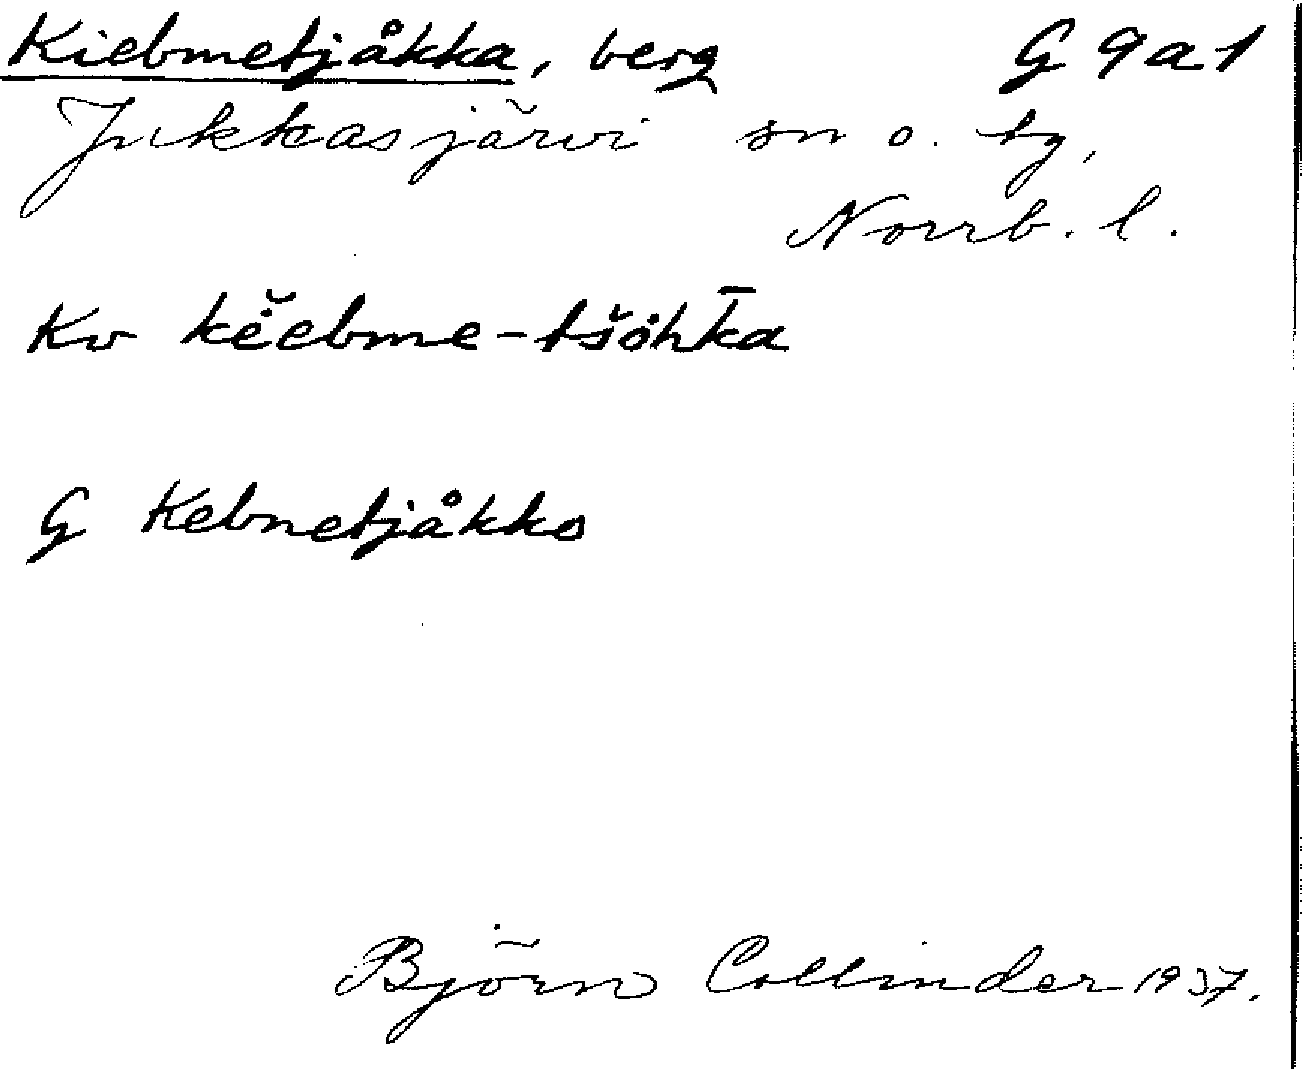 Kiebmetjåkka, berg G 9a1
Jukkasjärvi sn o. tg,
Norrb. l.
Kv kĕ̇ebme-tšȯhk̄a
G Kebnetjåkko
Björn Collinder 1937.